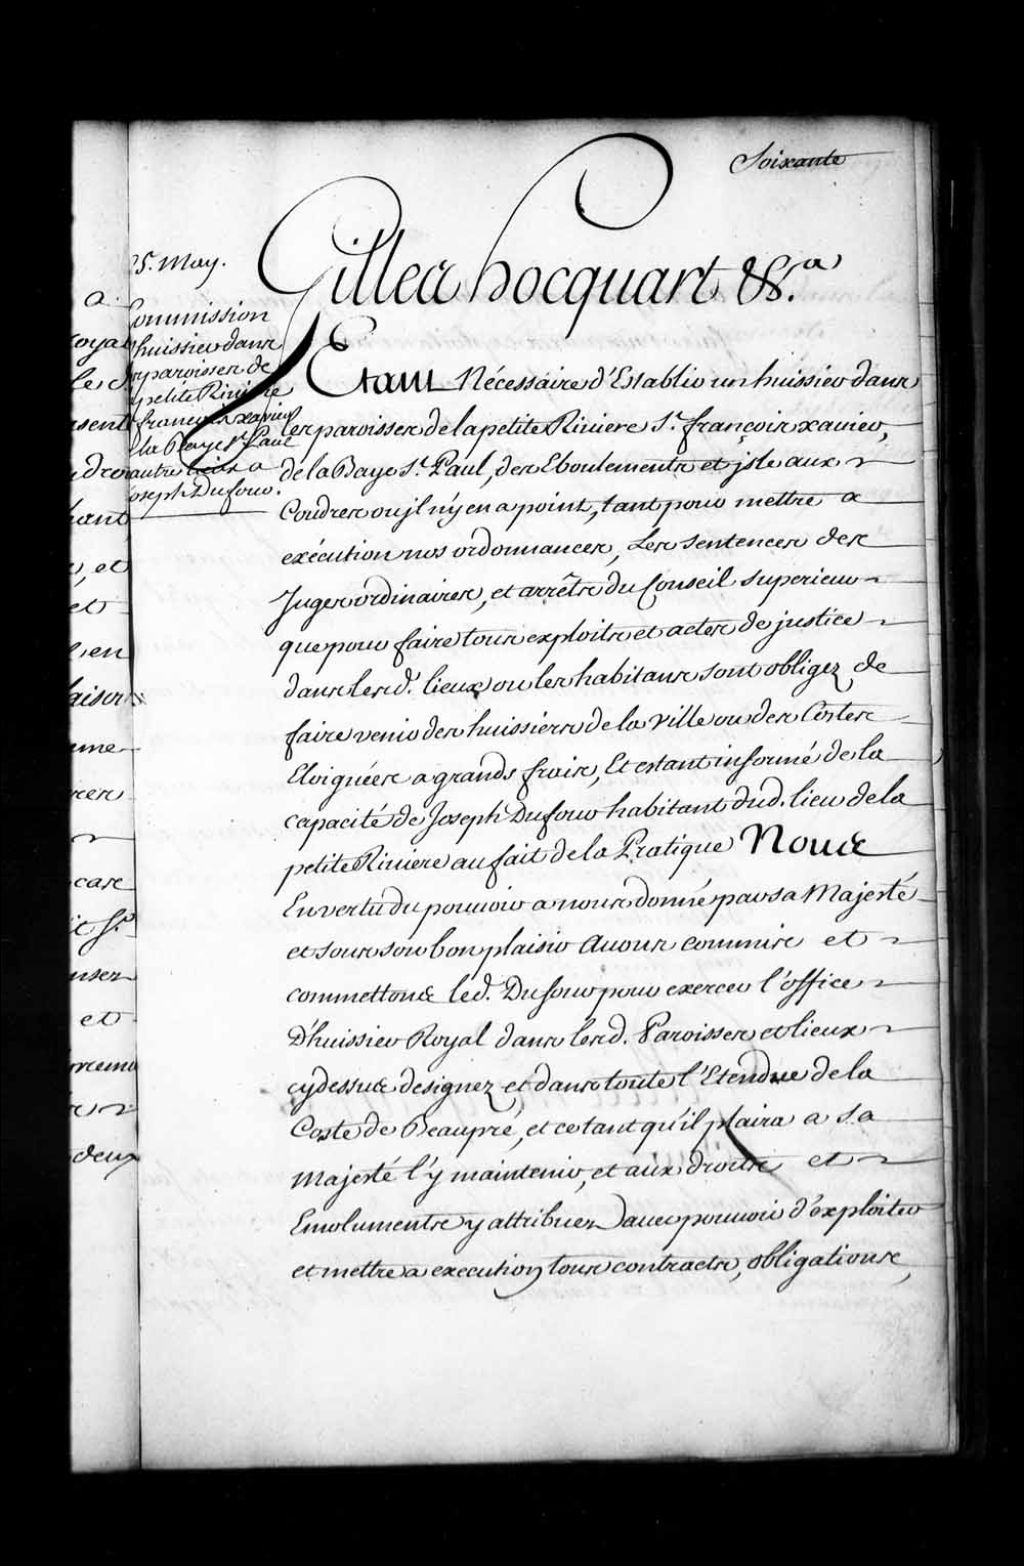 Soixante
Gilles hocquart &c.a
5. May.
Commission
huissier dans
paroisses de
petite Riviere
françois xavier
la Baye St. Paul
autre lieux a
Joseph Dufour.
Etant Nécessaire d'Establir un huissier dans
les paroisses de la petite Riviere St. françois xavier,
de la Baye St. Paul, des Eboulements et jsle aux
Coudres ou jl n'y en a point, tant pour mettre a
exécution nos ordonnances, Les sentences des
Juges ordinaires, et arrêts du Conseil superieur
que pour faire tous exploits et actes de justice
dans lesd. lieux ou les habitans sont obligez de
faire venir des huissiers de la ville ou des Costes
Eloignées a grands frais, Et estant informé de la
capacité de Joseph Dufour habitant dud. lieu de la
petite Riviere au fait de la Pratique Nous
En vertu du pouvoir a nous donné par sa Majesté
et sous son bon plaisir avons commis et
commettons led. Dufour pour exercer l'office
D'huissier Royal dans lesd. Paroisses et lieux
cydessus designez et dans toute l'Etendue de la
Coste de Beaupré, et ce tant qu'il plaira a sa
Majesté l'y maintenir, et aux droits et
Emolumens y attribuez avec pouvoir d'exploiter
et mettre a execution tous contracts, obligations,